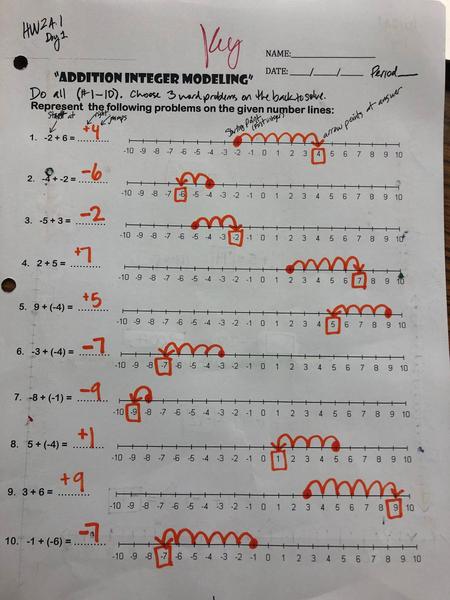 HW2A.1
Day 1
Key
NAME:
DATE: / / Period
"ADDITION INTEGER MODELING"
Do all (#1-10). Choose 3 word problems on the back to solve.
Represent the following problems on the given number lines:
start at right jumps
starting point (first integer) arrow points at answer
1. -2 + 6 = +4
-10 -9 -8 -7 -6 -5 -4 -3 -2 -1 0 1 2 3 4 5 6 7 8 9 10
2. + -2 = -6
-10 -9 -8 -7 -6 -5 -4 -3 -2 -1 0 1 2 3 4 5 6 7 8 9 10
3. -5 + 3 = -2
-10 -9 -8 -7 -6 -5 -4 -3 -2 -1 0 1 2 3 4 5 6 7 8 9 10
4. 2 + 5 = +7
-10 -9 -8 -7 -6 -5 -4 -3 -2 -1 0 1 2 3 4 5 6 7 8 9 10
5. 9 + (-4) = +5
-10 -9 -8 -7 -6 -5 -4 -3 -2 -1 0 1 2 3 4 5 6 7 8 9 10
6. -3 + (-4) = -7
-10 -9 -8 -7 -6 -5 -4 -3 -2 -1 0 1 2 3 4 5 6 7 8 9 10
7. -8 + (-1) = -9
-10 -9 -8 -7 -6 -5 -4 -3 -2 -1 0 1 2 3 4 5 6 7 8 9 10
8. 5 + (-4) = +1
-10 -9 -8 -7 -6 -5 -4 -3 -2 -1 0 1 2 3 4 5 6 7 8 9 10
9. 3 + 6 = +9
-10 -9 -8 -7 -6 -5 -4 -3 -2 -1 0 1 2 3 4 5 6 7 8 9 10
10. -1 + (-6) = -7
-10 -9 -8 -7 -6 -5 -4 -3 -2 -1 0 1 2 3 4 5 6 7 8 9 10